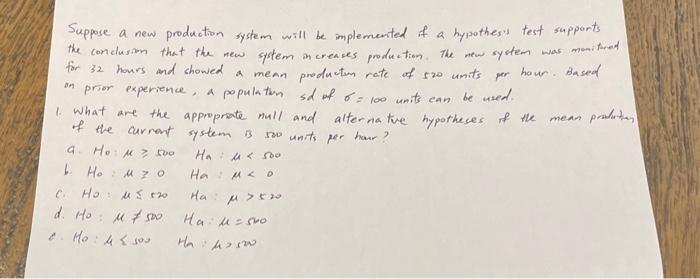 Suppose a new production system will be implemented if a hypothesis test supports
the conclusion that the new system increases production. The new system was monitored
for 32 hours and showed a mean production rate of 520 units per hour. Based
on prior experience, a population sd of σ = 100 units can be used.
1. What are the appropriate null and alternative hypotheses if the mean production
of the current system is 500 units per hour?
a. Ho: μ ≥ 500 Ha: μ < 500
b. Ho: μ ≥ 0 Ha: μ < 0
c. Ho: μ ≤ 520 Ha: μ > 520
d. Ho: μ ≠ 500 Ha: μ = 500
e. Ho: μ ≤ 500 Ha: μ > 500